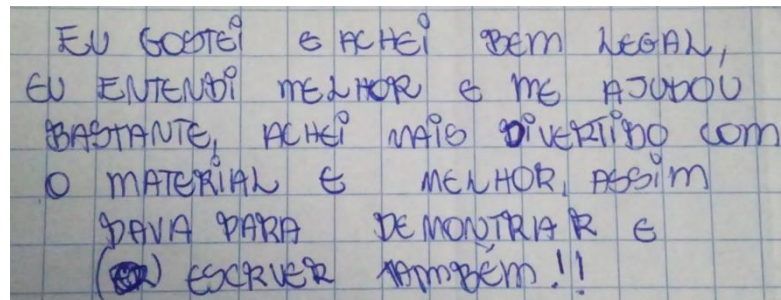 EU GOSTEi E ACHEi BEM LEGAL,
EU ENTENDi MELHOR E ME AJUDOU
BASTANTE, ACHEi MAiS DiVERTiDO COM
O MATERIAL E MELHOR, ASSiM
DAVA PARA DEMONTRIAR E
ESCRVER TAMBÉM!!